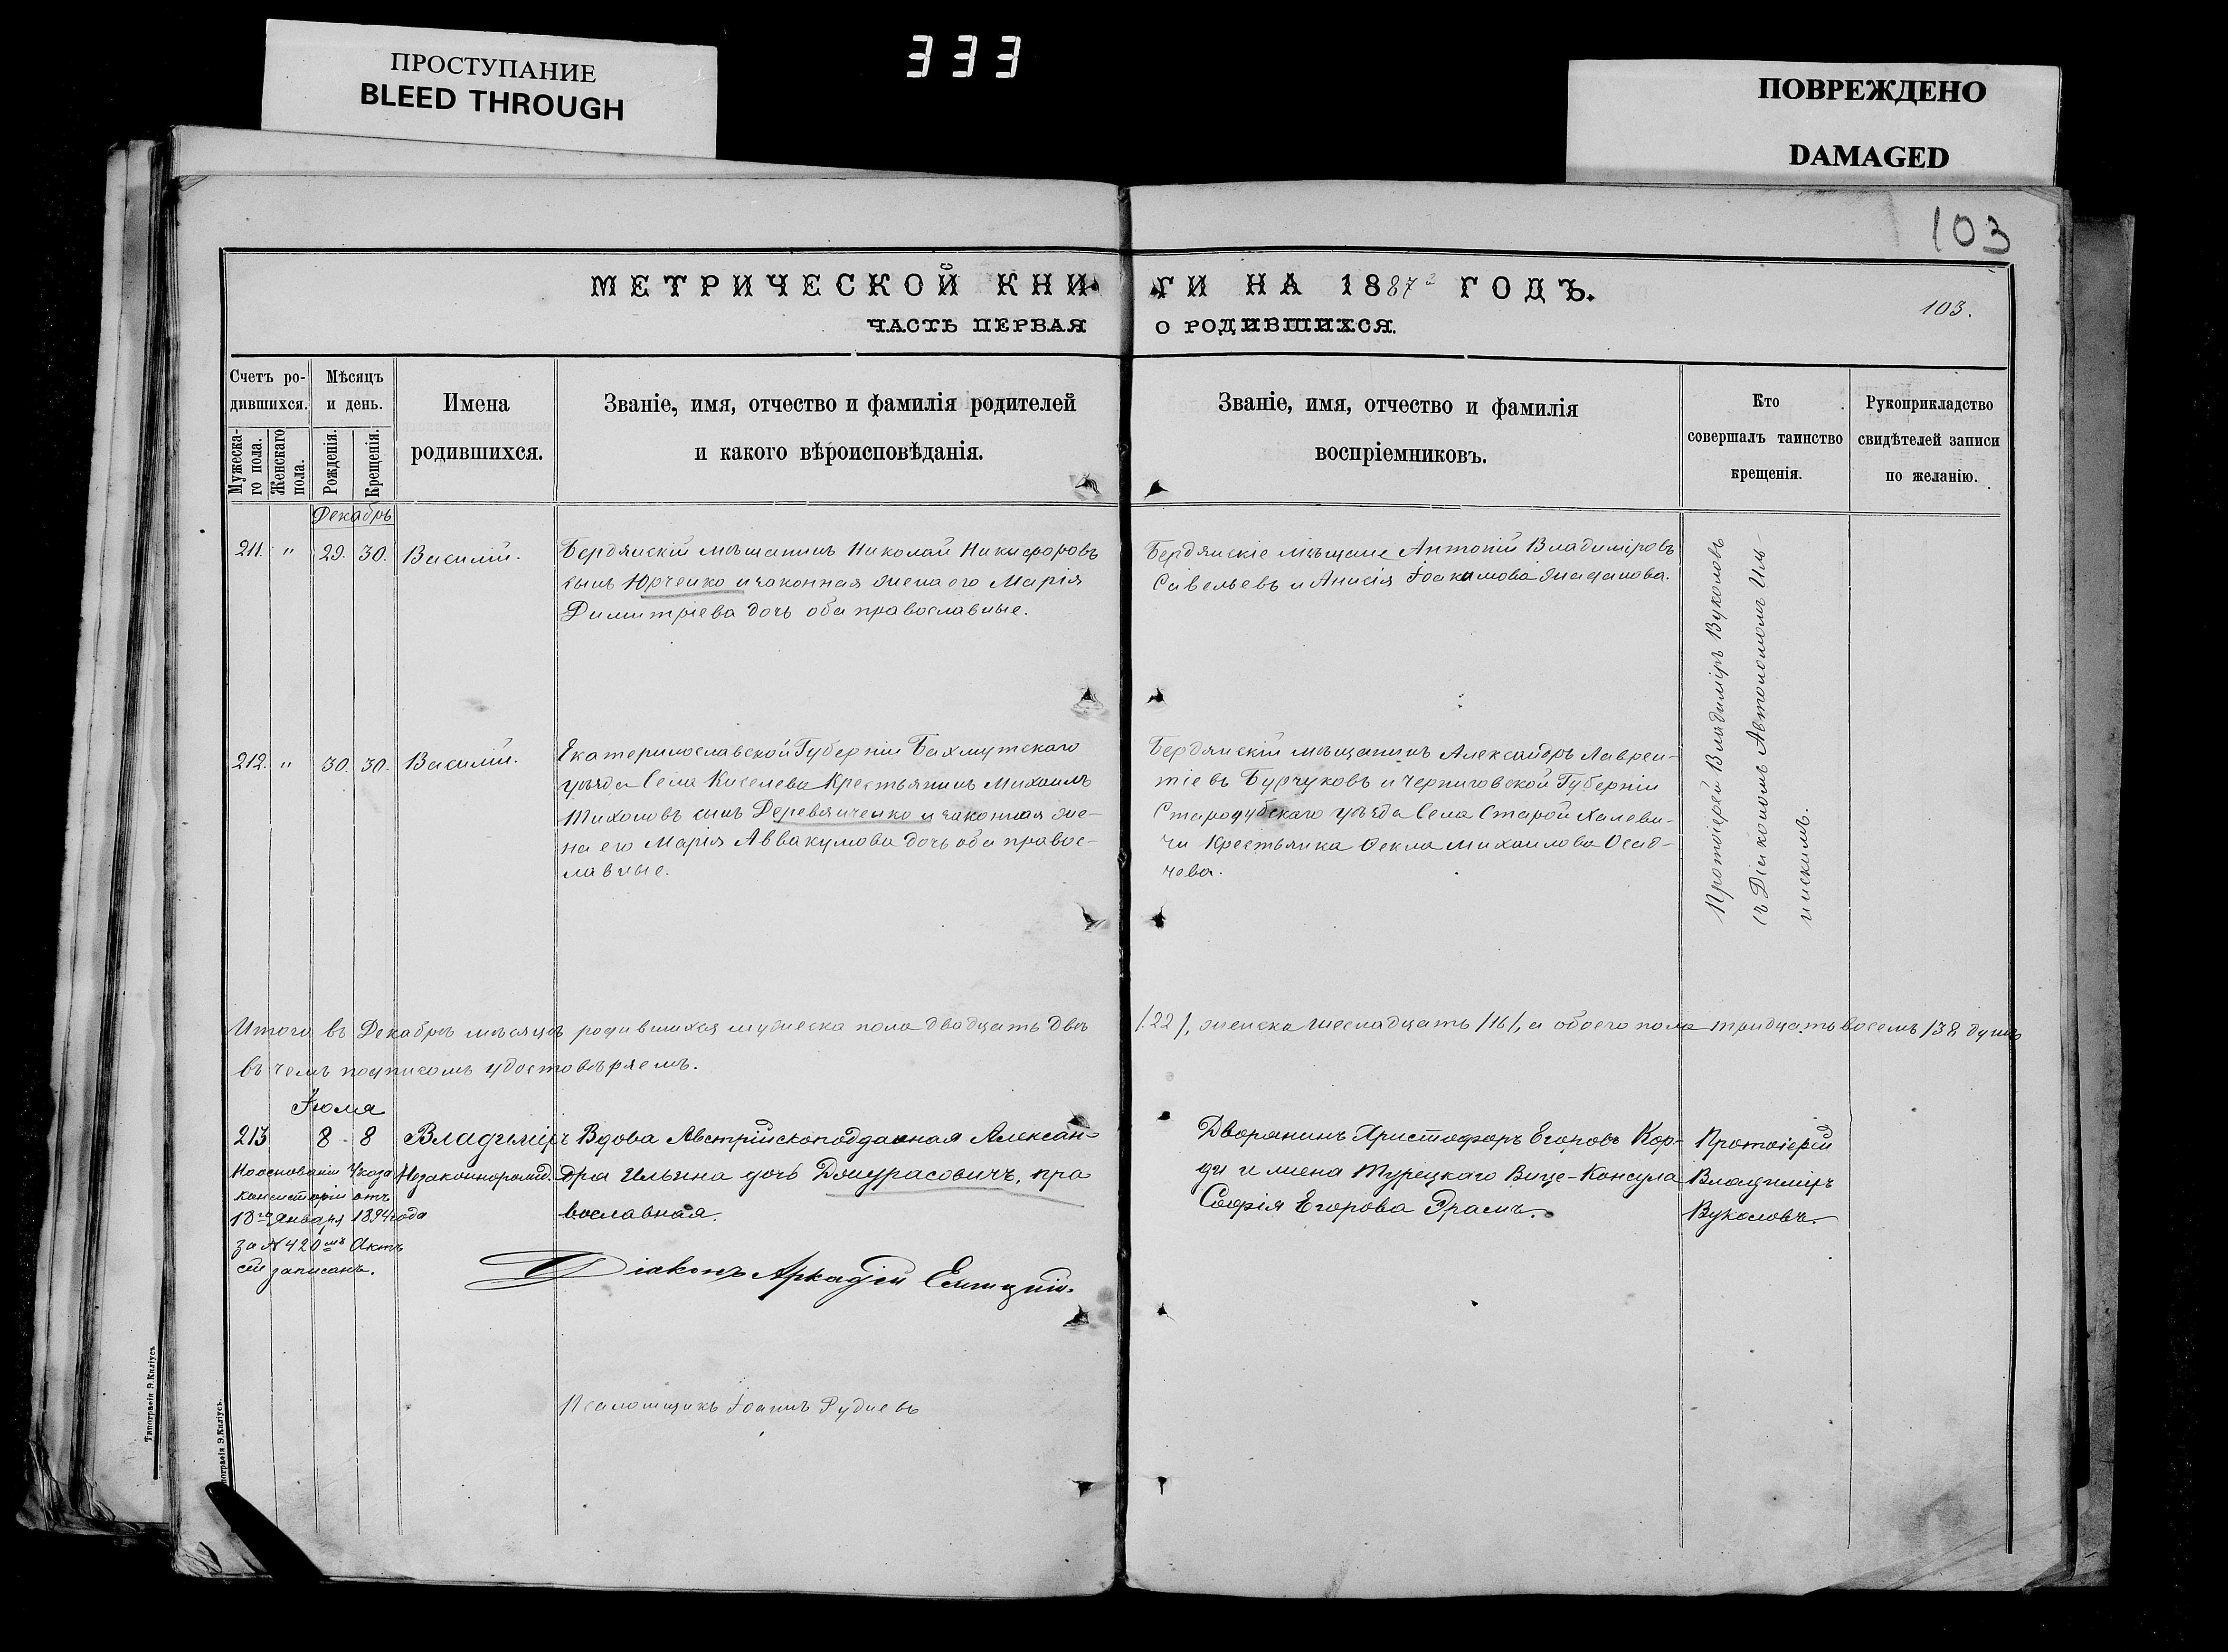 ПРОСТУПАНИЕ
BLEED THROUGH
333
ПОВРЕЖДЕНО
DAMAGED
103
МЕТРИЧЕСКОЙ КНИ
ГИ НА 1887 ГОДЪ.
103.
ЧАСТЬ ПЕРВАЯ
О РОДИВШИХСЯ.
Счетъ ро-
дившихся.
Мужеска-
го пола.
Женскаго
пола.
Мѣсяцъ
и день.
Рожденія.
Крещенія.
Имена
родившихся.
Званіе, имя, отчество и фамилія родителей
и какого вѣроисповѣданія.
Званіе, имя, отчество и фамилія
воспріемниковъ.
Кто
совершалъ таинство
крещенія.
Рукоприкладство
свидѣтелей записи
по желанію.
Декабрь
211. " 29. 30. Василій.
Бердянскій мѣщанинъ Николай Никифоровъ
сынъ Юрченко и законная жена его Марія
Димитріева дочь оба православные.
Бердянскіе мѣщане Антоній Владиміровъ
Савельевъ и Анисія Іоакимова
212. " 30. 30. Василій.
Екатеринославской Губерніи Бахмутскаго
уѣзда Села Киселева Крестьянинъ Михаилъ
Тихоновъ сынъ Деревянченко и законная же-
на его Марія Аввакумова дочь оба правос-
лавные.
Бердянскій мѣщанинъ Александръ Лаврен-
тіевъ Бурчуковъ и Черниговской Губерніи
Стародубскаго уѣзда Села Старой Халеви-
чи Крестьянка Ѳекла Михаилова Осад-
чева.
Протоіерей Владиміръ Вуколовъ
съ Діакономъ Автономомъ Иль-
инскимъ.
Итого въ Декабрѣ мѣсяцѣ родившихся мужеска пола двадцать два
/22/, женска шеснадцать /16/, а обоего пола тридцать восемь /38 душъ
въ чемъ подписомъ удостовѣряемъ.
Іюля
213 8 - 8 Владиміръ
Незаконнорожд.
Вдова Австрійскоподданная Алексан-
дра Ильина дочь Домурасовичъ, пра
вославная.
Дворянинъ Христофоръ Егоровъ Кор-
ди и жена Турецкаго Вице-Консула
Софія Егорова Грамъ.
Протоіерей
Владиміръ
Вуколовъ.
На основаніи Указа
Консисторіи отъ
18го Января 1894 года
за № 420мъ Актъ
сей записанъ.
Діаконъ Аркадій
Псаломщикъ Іоаннъ Рудневъ
Типографія Э.Киліусъ
пографія Э.Киліусъ.